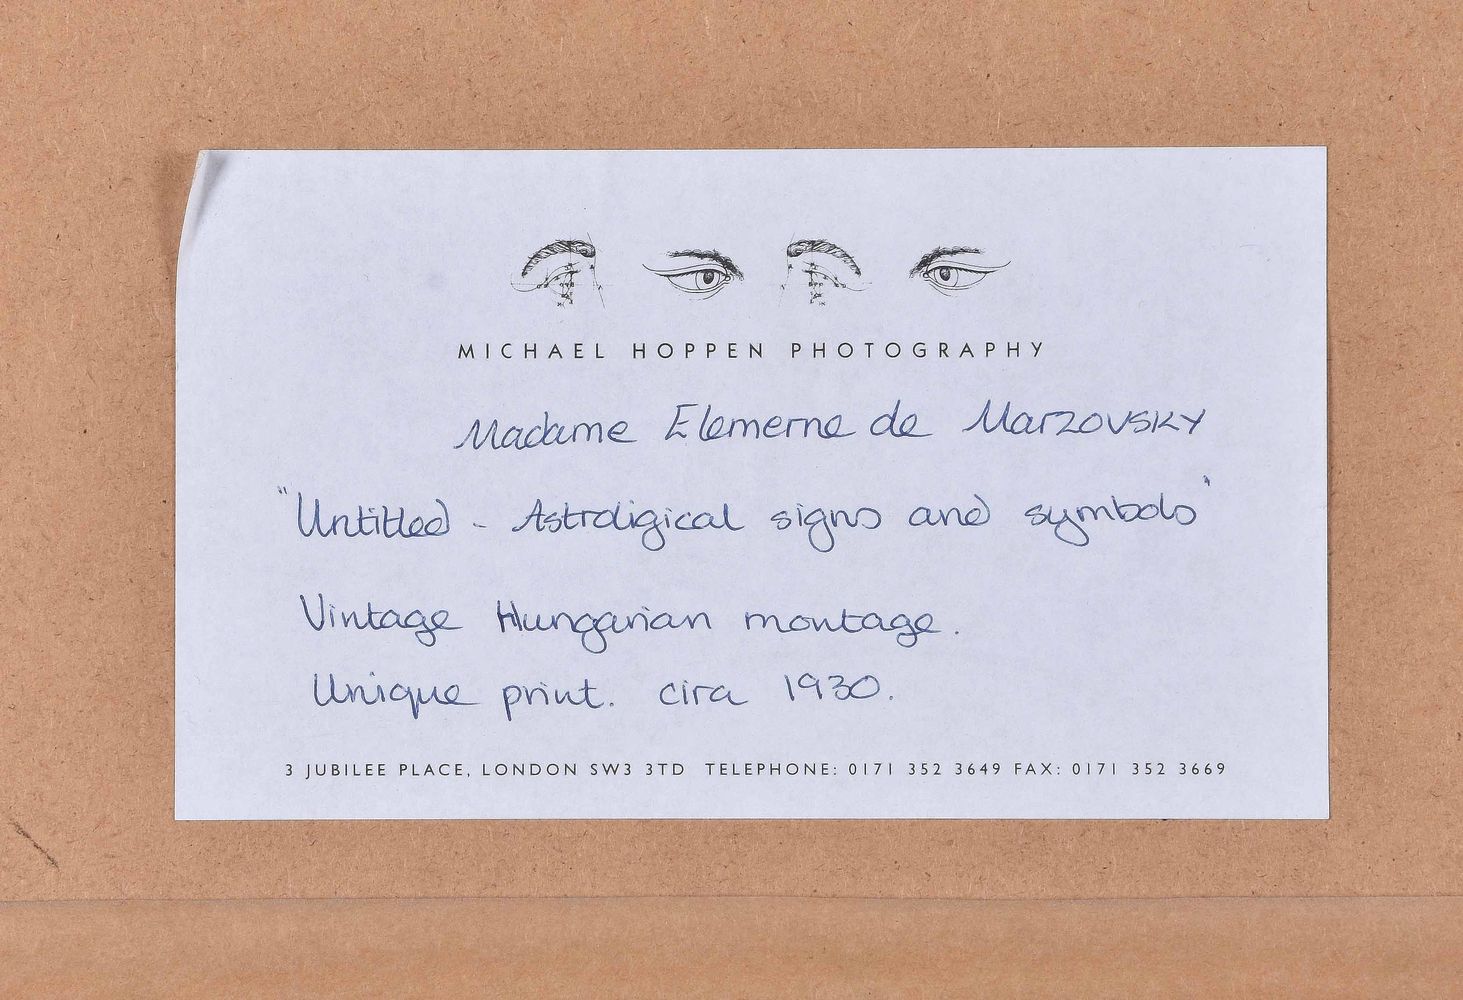 MICHAEL HOPPEN PHOTOGRAPHY
Madame Elemerne de Marzovsky
"Untitled - Astroligical signs and symbols"
Vintage Hungarian montage.
Unique print. cira 1930.
3 JUBILEE PLACE, LONDON SW3 3TD TELEPHONE: 0171 352 3649 FAX: 0171 352 3669